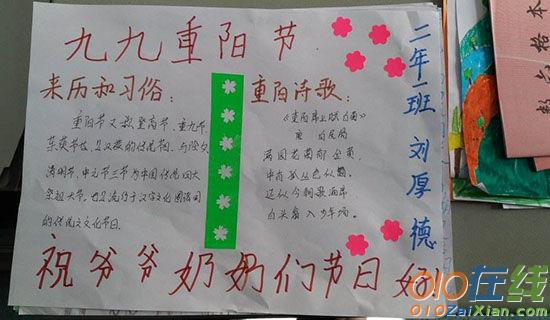 九九重阳节
来历和习俗：
重阳节又称登高节、重九节、
茱萸节
清明节、中元节三节
祭祖大节。也是流行于汉字文化圈诸国
的传统文化节日。
重阳诗歌：
《重阳席上赋白菊》
唐
满园花菊郁金黄，
中有孤丛色似霜。
还似今朝歌酒席，
白头翁入少年场。
二年一班 刘厚德
祝爷爷奶奶们节日好
数学格本
010在线
010ZaiXian.com